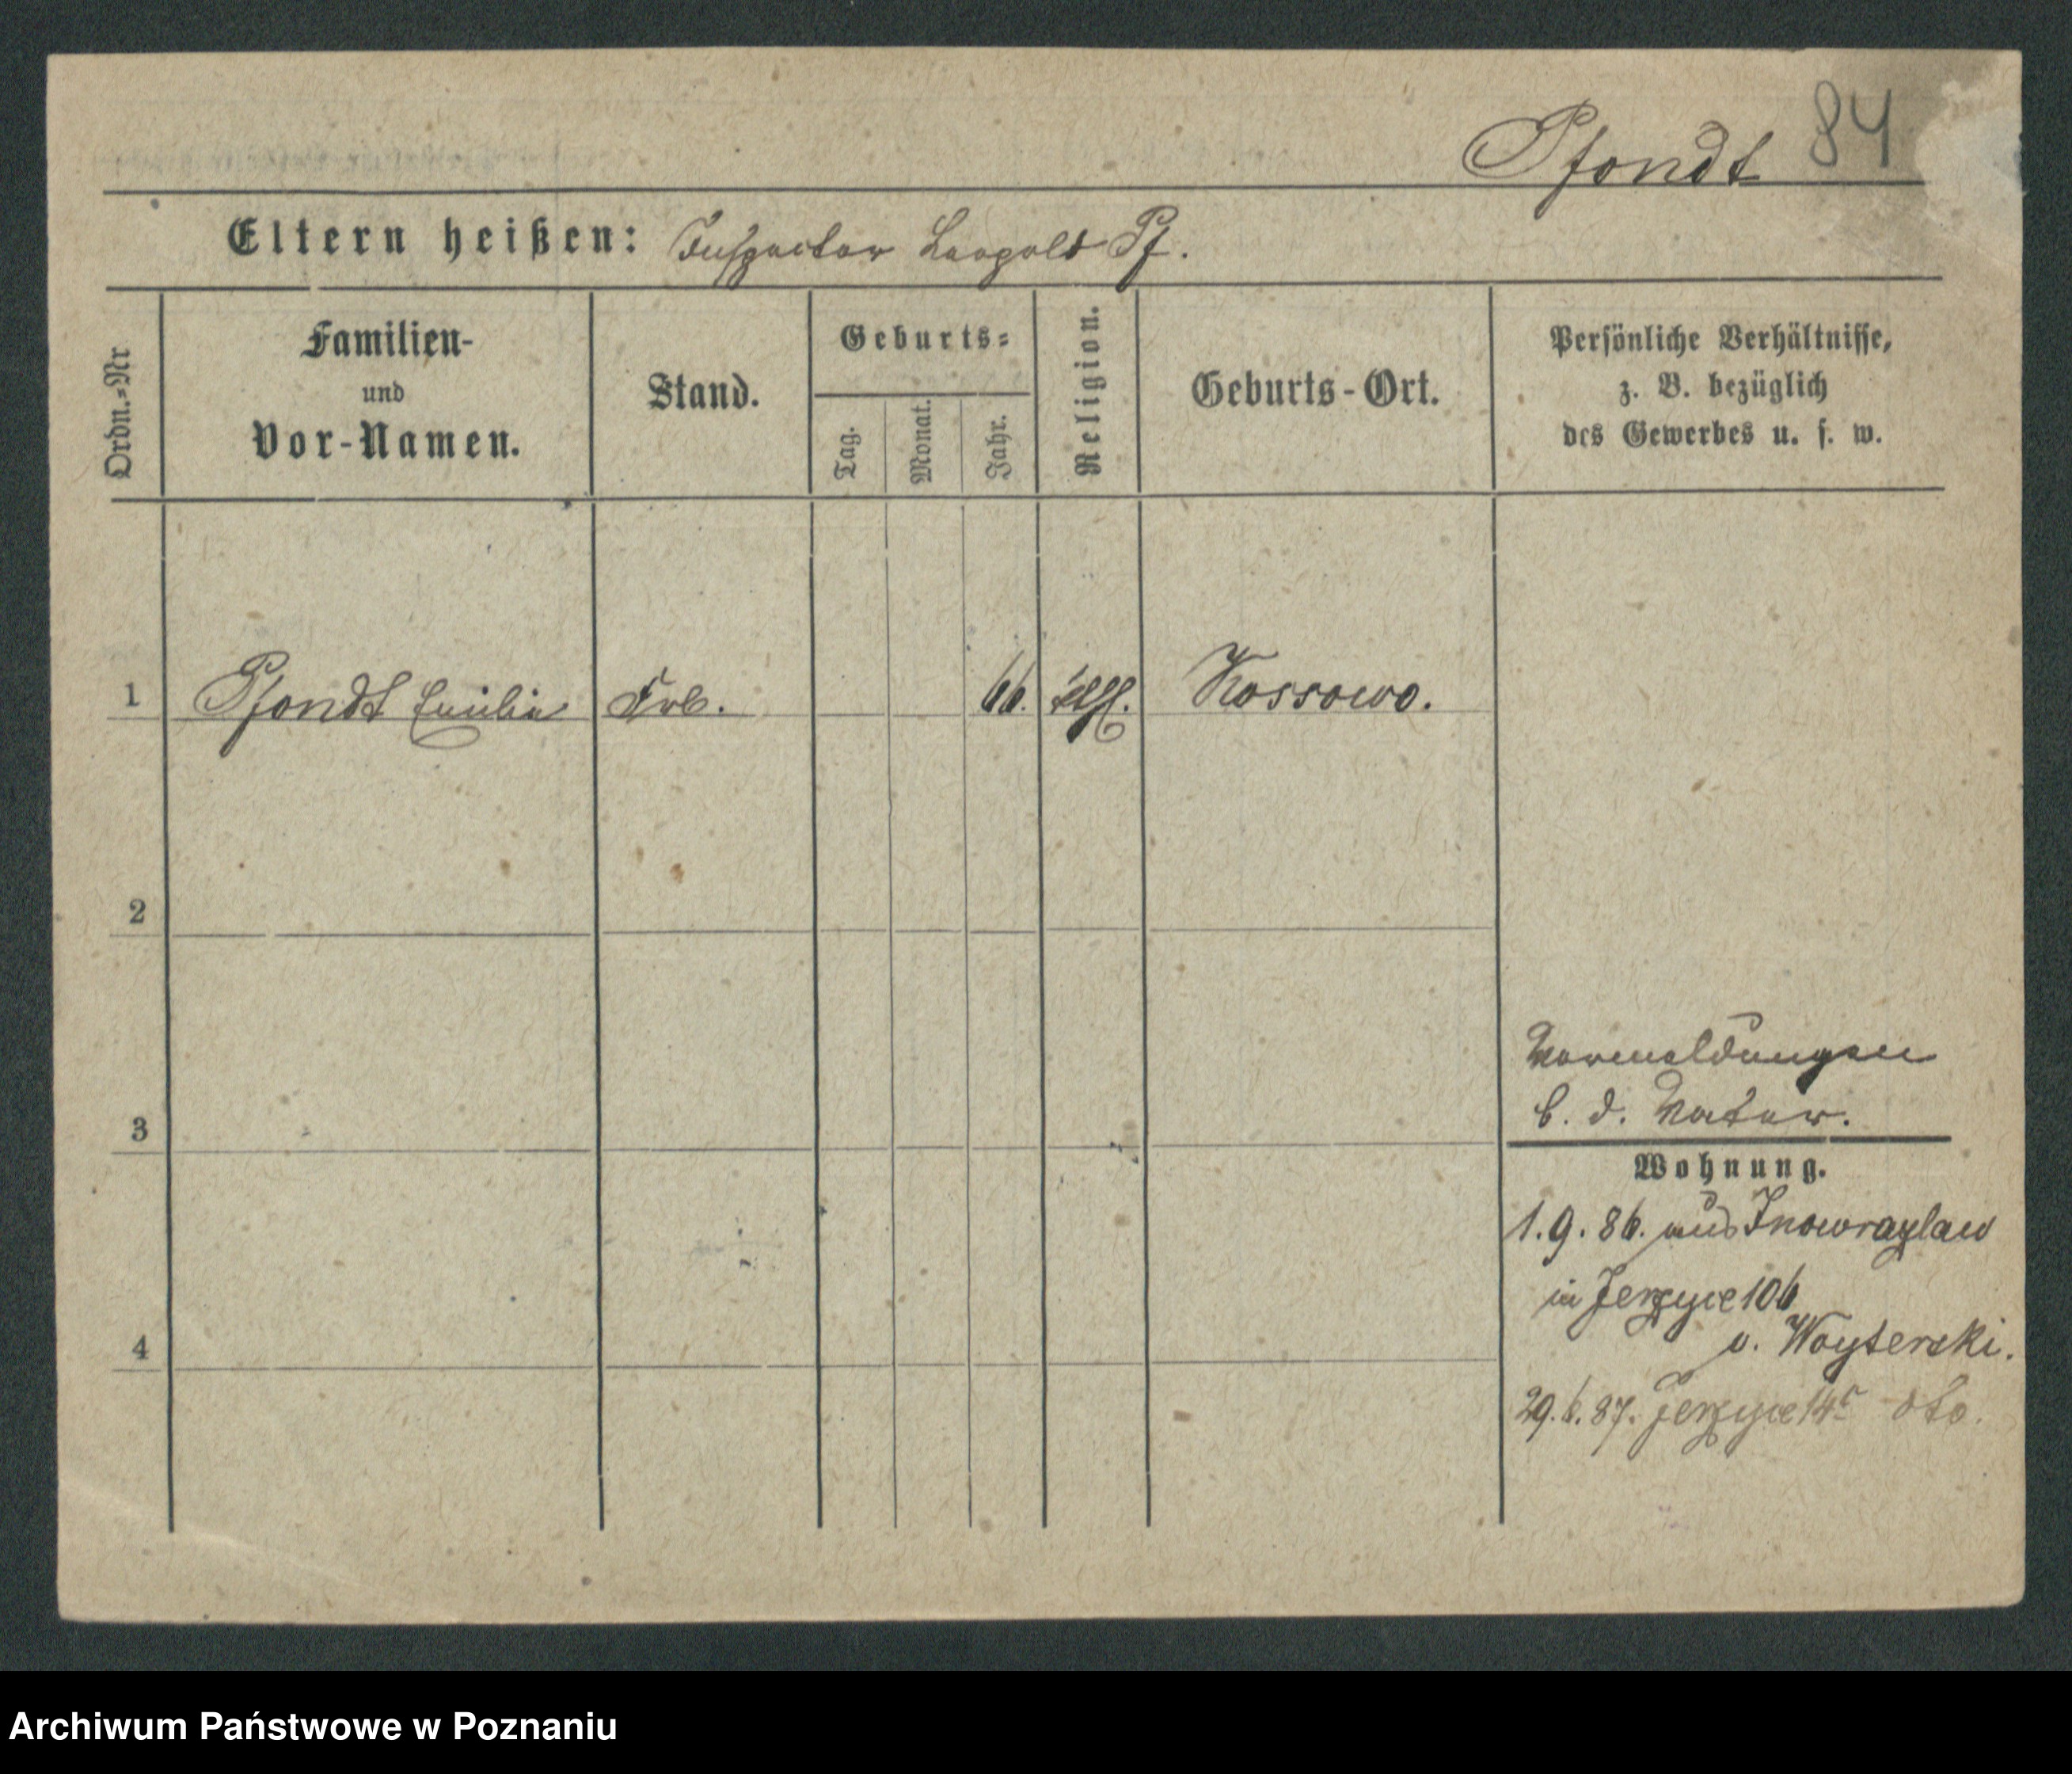 Pfondt 84
Eltern heißen: Inspector Leopold Pf.
Ordn.-Nr
Familien-
und
Vor-Namen.
Stand.
Geburts-
Tag.
Monat.
Jahr.
Religion.
Geburts-Ort.
Persönliche Verhältnisse,
z. B. bezüglich
des Gewerbes u. s. w.
1 Pfondt Emilie 66. Kossowo.
2
3
4
Vormeldungen
b. d. Vater.
Wohnung.
1.9.86. aus Inowrazlaw
in Jerzyce 106
v. Woyterski.
29.6.87. Jerzyce 14c dto.
Archiwum Państwowe w Poznaniu